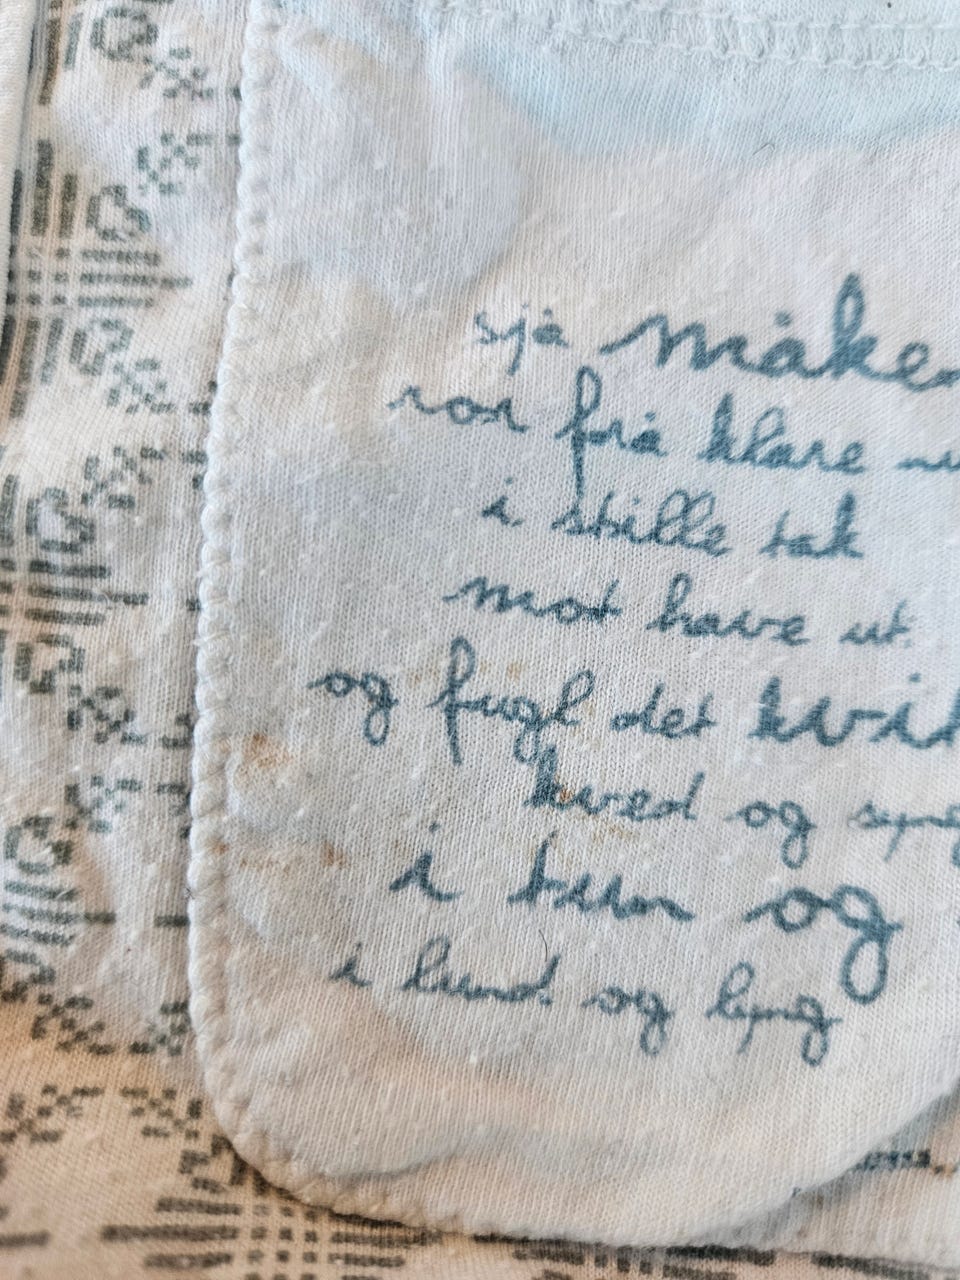 sjå måke
ror frå klare
i stille tak
mot have ut.
og fugl det
kved og
i tun og
i lund og lyng